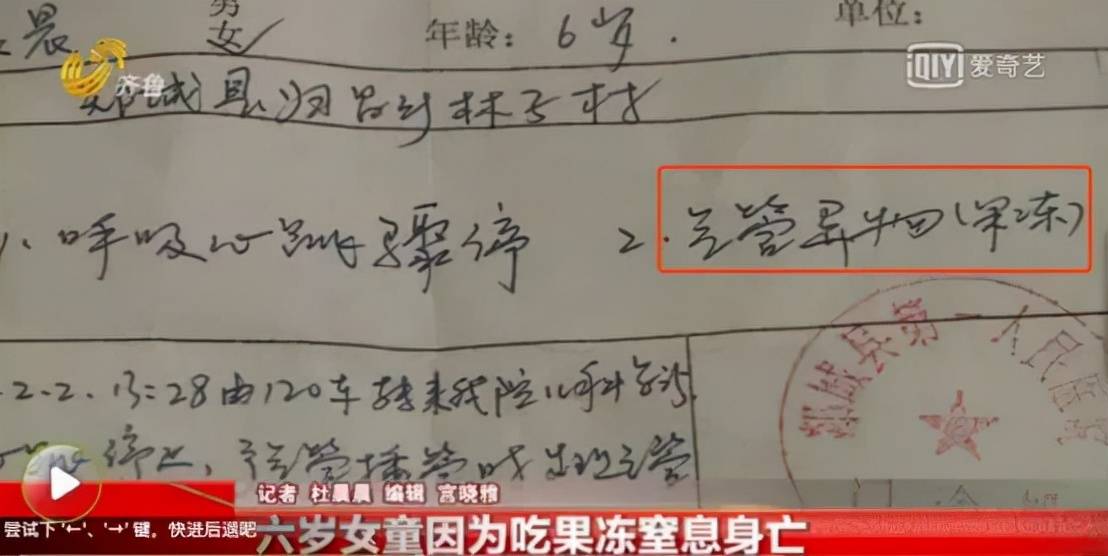 晨 男
女✓ 年龄: 6岁. 单位:
齐鲁
iQIYI 爱奇艺
郯城县归昌乡林子村
1、呼吸心跳骤停 2.气管异物(果冻)
郯城县第一人民医院
2.2. 13:28由120车转来我院儿科
停止, 气管插管时出现气管
记者 杜晨晨 编辑 宫晓雅
尝试下'←'、'→'键,快进后退吧
六岁女童因为吃果冻窒息身亡